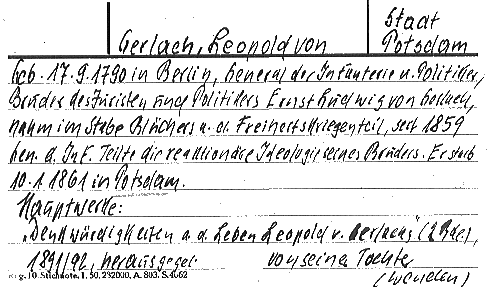 Staat
Gerlach, Leopold von Potsdam
Geb. 17.9.1790 in Berlin, General der Infanterie u. Politiker,
Bruder des Juristen und Politikers Ernst Ludwig von Gerlach,
nahm im Stabe Blüchers a. d. Freiheitskriegen teil, seit 1859
Gen. d. Inf. Teilte die reaktionäre Ideologie seines Bruders. Er starb
10.1.1861 in Potsdam.
Hauptwerke:
„Denkwürdigkeiten a. d. Leben Leopold v. Gerlachs" (2 Bde),
1891/92, herausgegeb. von seiner Tochter
g. 10. Stichnote. 1. 50. 232000. A. 803. S. 4062
(wenden)